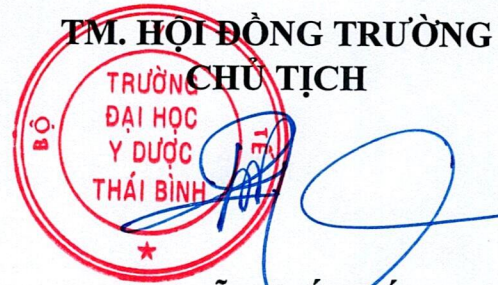 TM. HỘI ĐỒNG TRƯỜNG
CHỦ TỊCH
BỘ
TẾ
TRƯỜNG
ĐẠI HỌC
Y DƯỢC
THÁI BÌNH